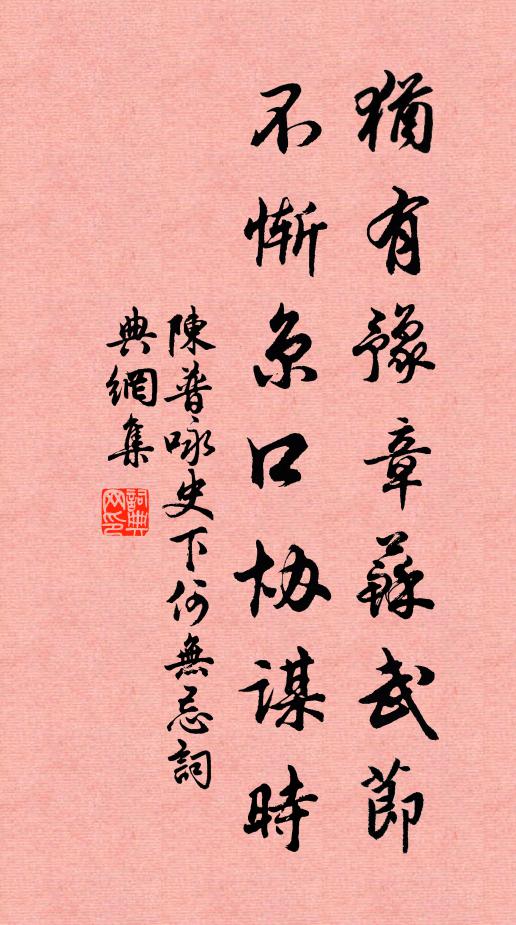 猶有豫章蘇武節
不慚京口協謀時
陳普咏史下何無忌詞
典網集
詞典網印